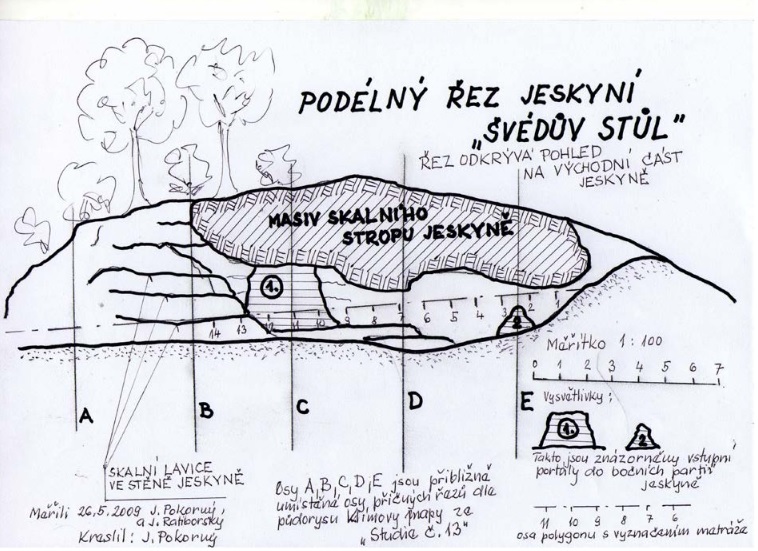 PODÉLNÝ ŘEZ JESKYNÍ
„ŠVÉDŮV STŮL"
ŘEZ ODKRÝVÁ POHLED
NA VÝCHODNÍ ČÁST
JESKYNĚ
MASIV SKALNÍHO
STROPU JESKYNĚ
1.
14 13 12 11 10 9 8 7 6 5 4 3 2 1
2
A B C D E
Měřítko 1:100
0 1 2 3 4 5 6 7
Vysvětlivky:
1. 2
Takto jsou znázorněny vstupní
portály do bočních partií
jeskyně
11 10 9 8 7 6
osa polygonu s vyznačením metráže
SKALNÍ LAVICE
VE STĚNĚ JESKYNĚ
Měřili 26,5.2009 J. Pokorný,
a J. Ratiborský
Kreslil: J. Pokorný
Osy A,B,C,D,E jsou přibližně
umístěné osy, příčných řezů dle
půdorysu Klímovy mapy ze
„Studie č.13"